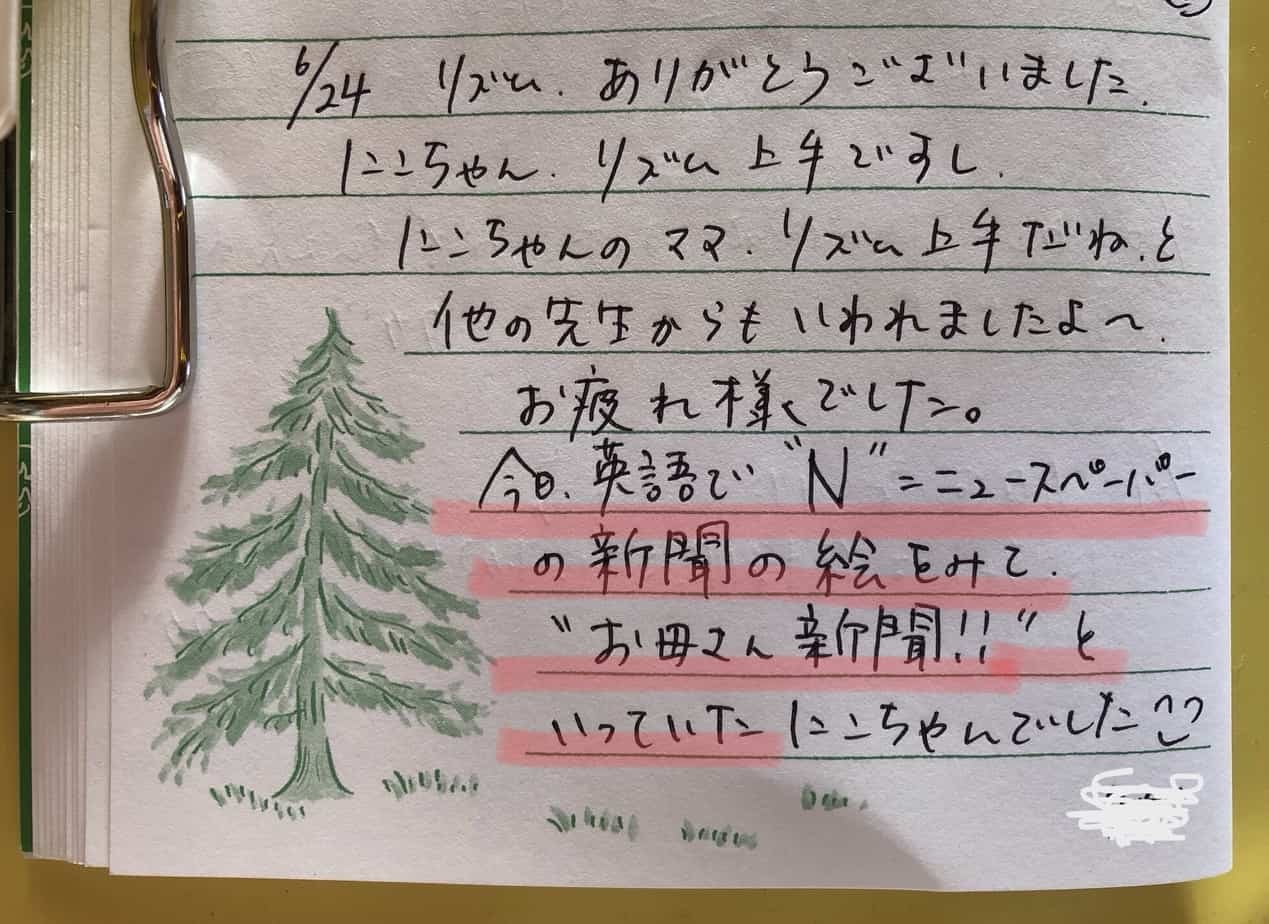 6/24 リズム、ありがとうございました。
にこちゃん、リズム上手ですし、
にこちゃんのママ、リズム上手だね、と
他の先生からもいわれましたよ〜。
お疲れ様でした。
今日、英語で“N”=ニュースペーパー
の新聞の絵をみて、
“お母さん新聞!!”と
いっていたにこちゃんでした